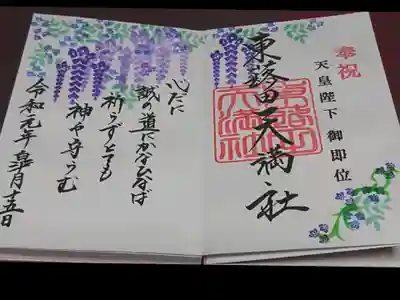 奉祝
天皇陛下御即位
東蕗田天満社
東蕗田
天満社
心だに
誠の道にかなひなば
祈らずとても
神や守らむ
令和元年皐月十五日